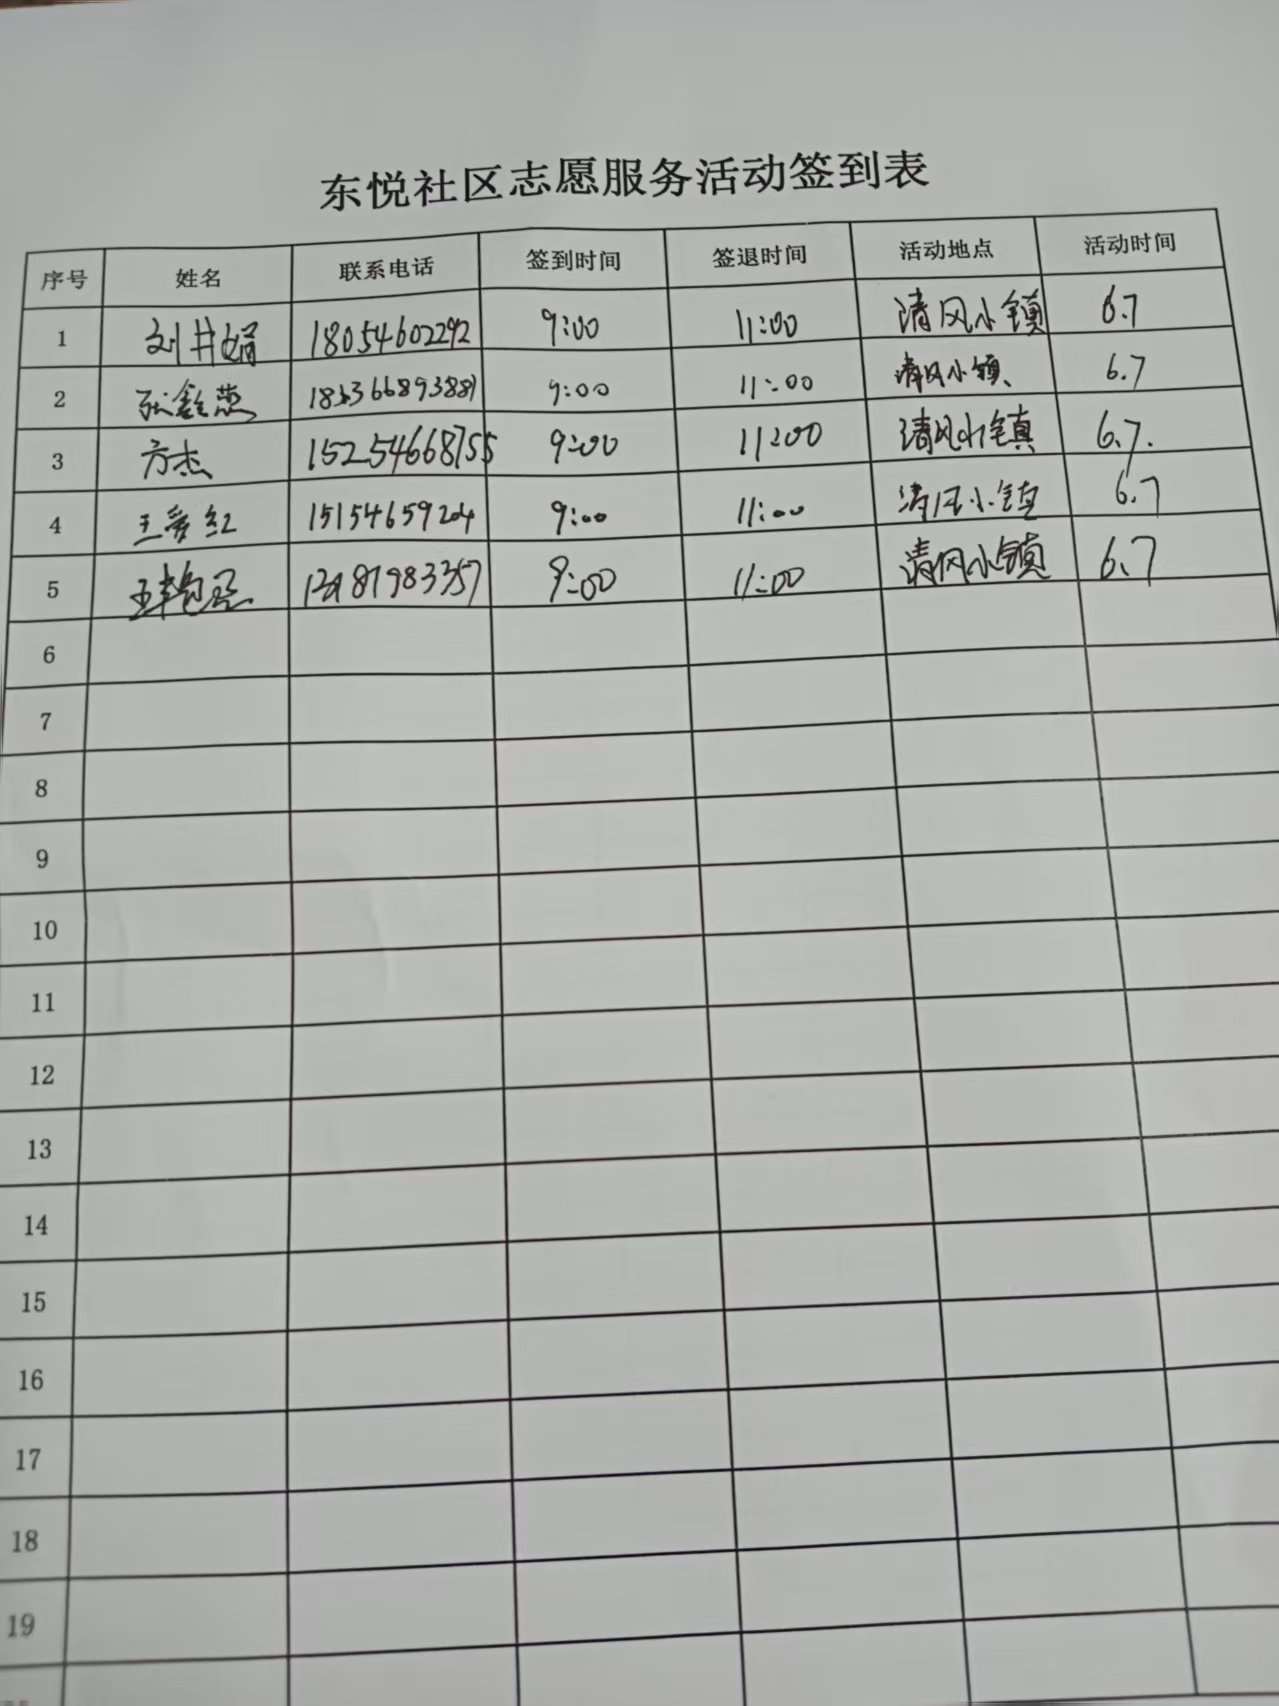 东悦社区志愿服务活动签到表
序号 姓名 联系电话 签到时间 签退时间 活动地点 活动时间
1 刘井娟 18054602292 9:00 11:00 清风小镇 6.7
2 张鑫燕 9:00 11:00 清风小镇 6.7
3 方杰 15254668755 9:00 11:00 清风小镇 6.7.
4 王爱红 15154659204 9:00 11:00 清风小镇 6.7
5 9:00 11:00 清风小镇 6.7
6
7
8
9
10
11
12
13
14
15
16
17
18
19